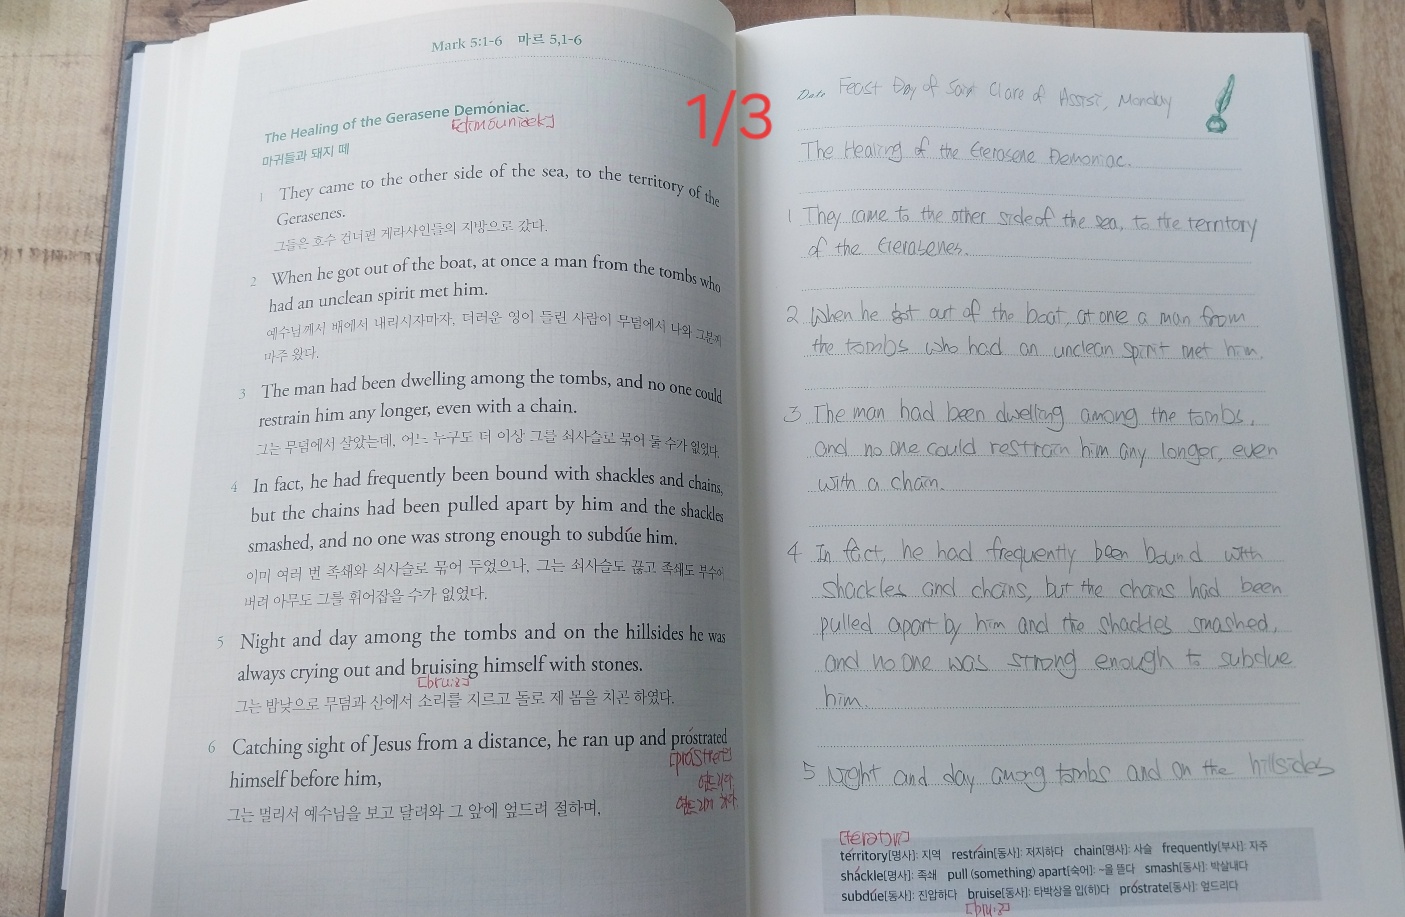 Mark 5:1-6 마르 5,1-6
1/3
The Healing of the Gerasene Demóniac.
[dimóuniæk]
마귀들과 돼지 떼
1 They came to the other side of the sea, to the territory of the
Gerasenes.
그들은 호수 건너편 게라사인들의 지방으로 갔다.
2 When he got out of the boat, at once a man from the tombs who
had an unclean spirit met him.
예수님께서 배에서 내리시자마자, 더러운 영이 들린 사람이 무덤에서 나와 그분께
마주 왔다.
3 The man had been dwelling among the tombs, and no one could
restrain him any longer, even with a chain.
그는 무덤에서 살았는데, 어느 누구도 더 이상 그를 쇠사슬로 묶어 둘 수가 없었다.
4 In fact, he had frequently been bound with shackles and chains,
but the chains had been pulled apart by him and the shackles
smashed, and no one was strong enough to subdúe him.
이미 여러 번 족쇄와 쇠사슬로 묶어 두었으나, 그는 쇠사슬도 끊고 족쇄도 부수어
버려 아무도 그를 휘어잡을 수가 없었다.
5 Night and day among the tombs and on the hillsides he was
always crying out and bruising himself with stones.
[bru:z]
그는 밤낮으로 무덤과 산에서 소리를 지르고 돌로 제 몸을 치곤 하였다.
6 Catching sight of Jesus from a distance, he ran up and próstrated
himself before him,
엎드리다
그는 멀리서 예수님을 보고 달려와 그 앞에 엎드려 절하며,
Date Feast Day of Saint Clare of Assisi, Monday
The Healing of the Gerasene Demoniac.
1 They came to the other side of the sea, to the territory
of the Gerasenes.
2 When he got out of the boat, at one a man from
the tombs who had an unclean spirit met him.
3 The man had been dwelling among the tombs,
and no one could restrain him any longer, even
with a chain.
4 In fact, he had frequently been bound with
shackles and chains, but the chains had been
pulled apart by him and the shackles smashed,
and no one was strong enough to subdue
him.
5 Night and day among tombs and on the hillsides
térritory[명사]: 지역 restráin[동사]: 저지하다 chain[명사]: 사슬 frequently[부사]: 자주
sháckle[명사]: 족쇄 pull (something) apart[숙어]: ~을 뜯다 smash[동사]: 박살내다
subdúe[동사]: 진압하다 bruise[동사]: 타박상을 입(히)다 próstrate[동사]: 엎드리다
[bru:z]